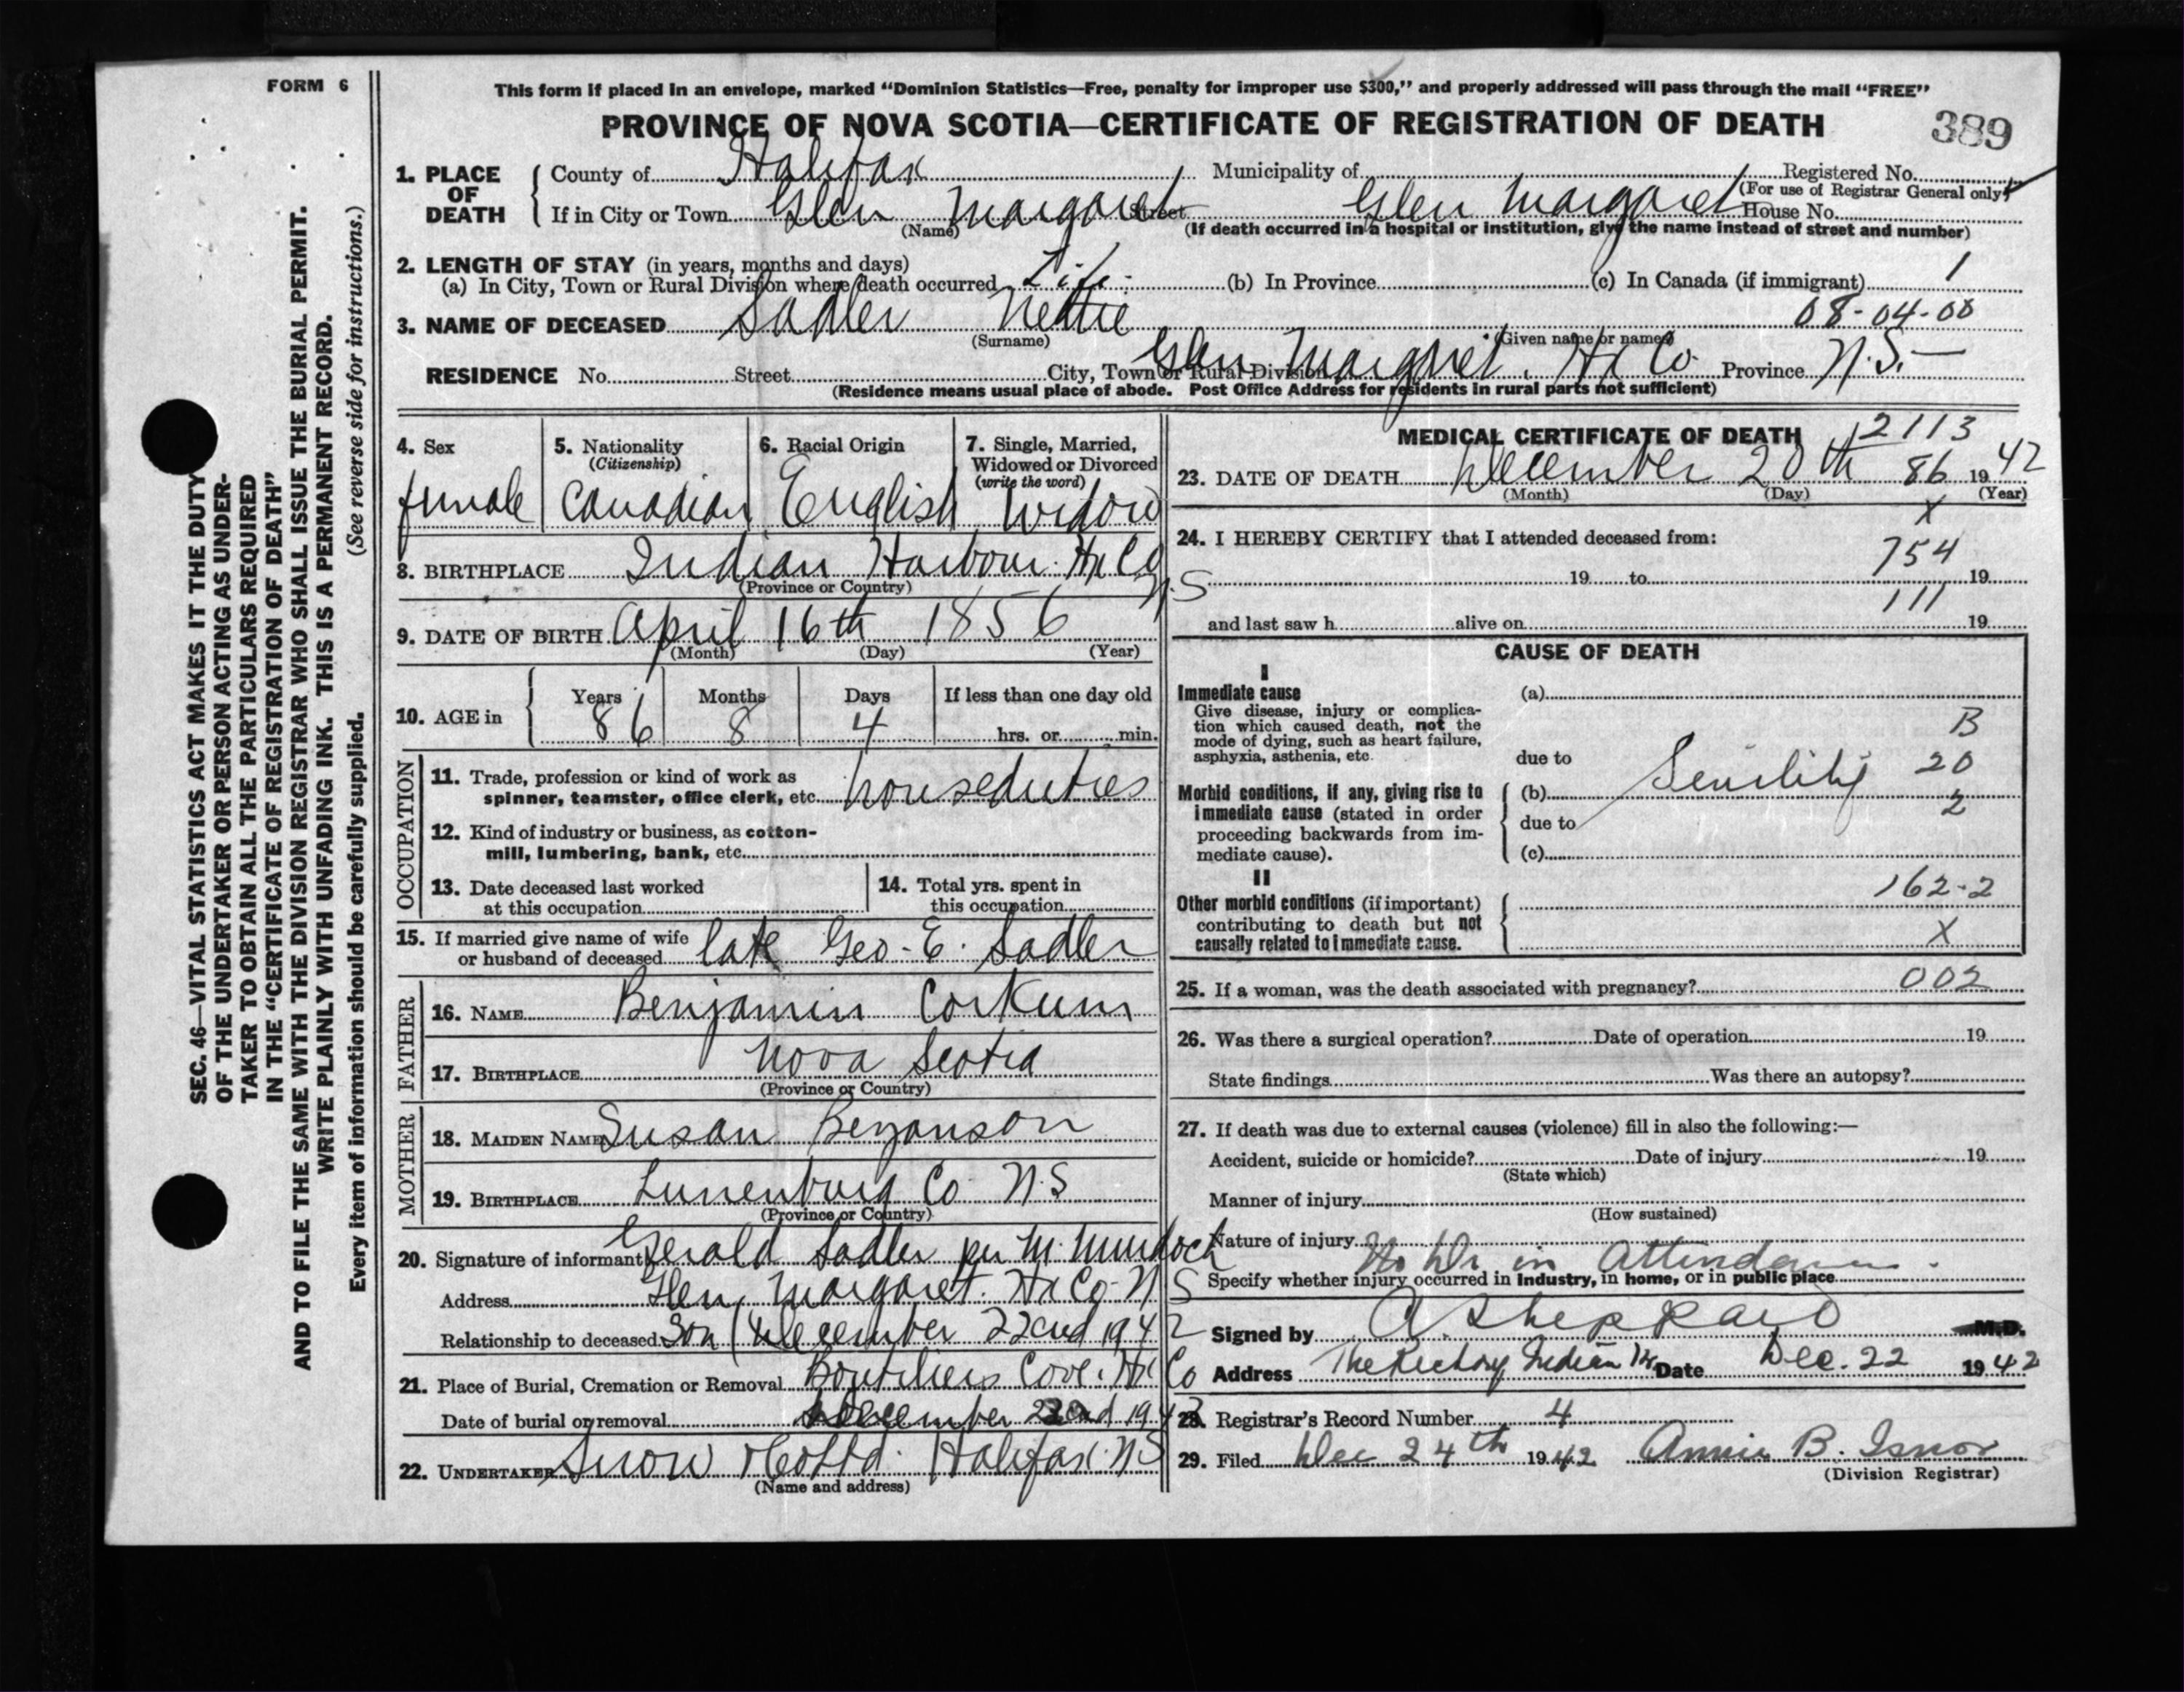 FORM 6
This form if placed in an envelope, marked “Dominion Statistics—Free, penalty for improper use $300,” and properly addressed will pass through the mail “FREE”
PROVINCE OF NOVA SCOTIA—CERTIFICATE OF REGISTRATION OF DEATH
389
1. PLACE OF DEATH
County of Halifax Municipality of Registered No.
(For use of Registrar General only)
If in City or Town Glen Margaret Street Glen Margaret House No.
(Name) (If death occurred in a hospital or institution, give the name instead of street and number)
2. LENGTH OF STAY (in years, months and days)
(a) In City, Town or Rural Division where death occurred Life (b) In Province (c) In Canada (if immigrant) 1
3. NAME OF DECEASED Sadler Nettie 08-04-00
(Surname) (Given name or names)
RESIDENCE No. Street City, Town or Rural Division Glen Margret. Hx Co Province N.S.—
(Residence means usual place of abode. Post Office Address for residents in rural parts not sufficient)
4. Sex
female
5. Nationality
(Citizenship)
Canadian
6. Racial Origin
English
7. Single, Married,
Widowed or Divorced
(write the word)
Widow
8. BIRTHPLACE Indian Harbour. Hx Co N.S
(Province or Country)
9. DATE OF BIRTH April 16th 1856
(Month) (Day) (Year)
10. AGE in
Years Months Days If less than one day old
86 8 4 hrs. or min.
OCCUPATION
11. Trade, profession or kind of work as
spinner, teamster, office clerk, etc. houseduties
12. Kind of industry or business, as cotton-
mill, lumbering, bank, etc.
13. Date deceased last worked
at this occupation
14. Total yrs. spent in
this occupation
15. If married give name of wife
or husband of deceased late Geo-E. Sadler
FATHER
16. NAME Benjamin Corkum
17. BIRTHPLACE Nova Scotia
(Province or Country)
MOTHER
18. MAIDEN NAME Susan Bezanson
19. BIRTHPLACE Lunenburg Co N.S
(Province or Country)
20. Signature of informant Gerald Sadler per M. Murdoch
Address Glen Margaret. Hx Co-N S
Relationship to deceased Son December 22cnd 1942
21. Place of Burial, Cremation or Removal Boutiliers Cove. Hx Co
Date of burial or removal December 22cnd 1942
22. UNDERTAKER Snow & Co Ltd. Halifax. NS
(Name and address)
MEDICAL CERTIFICATE OF DEATH
2113
23. DATE OF DEATH December 20th 86 1942
(Month) (Day) (Year)
X
24. I HEREBY CERTIFY that I attended deceased from:
754
19 to 19
111
and last saw h alive on 19
CAUSE OF DEATH
I
Immediate cause
Give disease, injury or complica-
tion which caused death, not the
mode of dying, such as heart failure,
asphyxia, asthenia, etc.
(a)
B
due to
Senility 20
Morbid conditions, if any, giving rise to
immediate cause (stated in order
proceeding backwards from im-
mediate cause).
(b)
2
due to
(c)
II
Other morbid conditions (if important)
contributing to death but not
causally related to immediate cause.
162-2
X
25. If a woman, was the death associated with pregnancy? 002
26. Was there a surgical operation? Date of operation 19
State findings Was there an autopsy?
27. If death was due to external causes (violence) fill in also the following:—
Accident, suicide or homicide? Date of injury 19
(State which)
Manner of injury
(How sustained)
Nature of injury
No Dr in Attendance.
Specify whether injury occurred in industry, in home, or in public place
Signed by A Sheppard M.D.
Address The Rectory Indian Hr Date Dec. 22 1942
28. Registrar's Record Number 4
29. Filed Dec 24th 1942 Annie B. Isnor
(Division Registrar)
SEC. 46—VITAL STATISTICS ACT MAKES IT THE DUTY
OF THE UNDERTAKER OR PERSON ACTING AS UNDER-
TAKER TO OBTAIN ALL THE PARTICULARS REQUIRED
IN THE “CERTIFICATE OF REGISTRATION OF DEATH”
AND TO FILE THE SAME WITH THE DIVISION REGISTRAR WHO SHALL ISSUE THE BURIAL PERMIT.
WRITE PLAINLY WITH UNFADING INK. THIS IS A PERMANENT RECORD.
Every item of information should be carefully supplied. (See reverse side for instructions.)